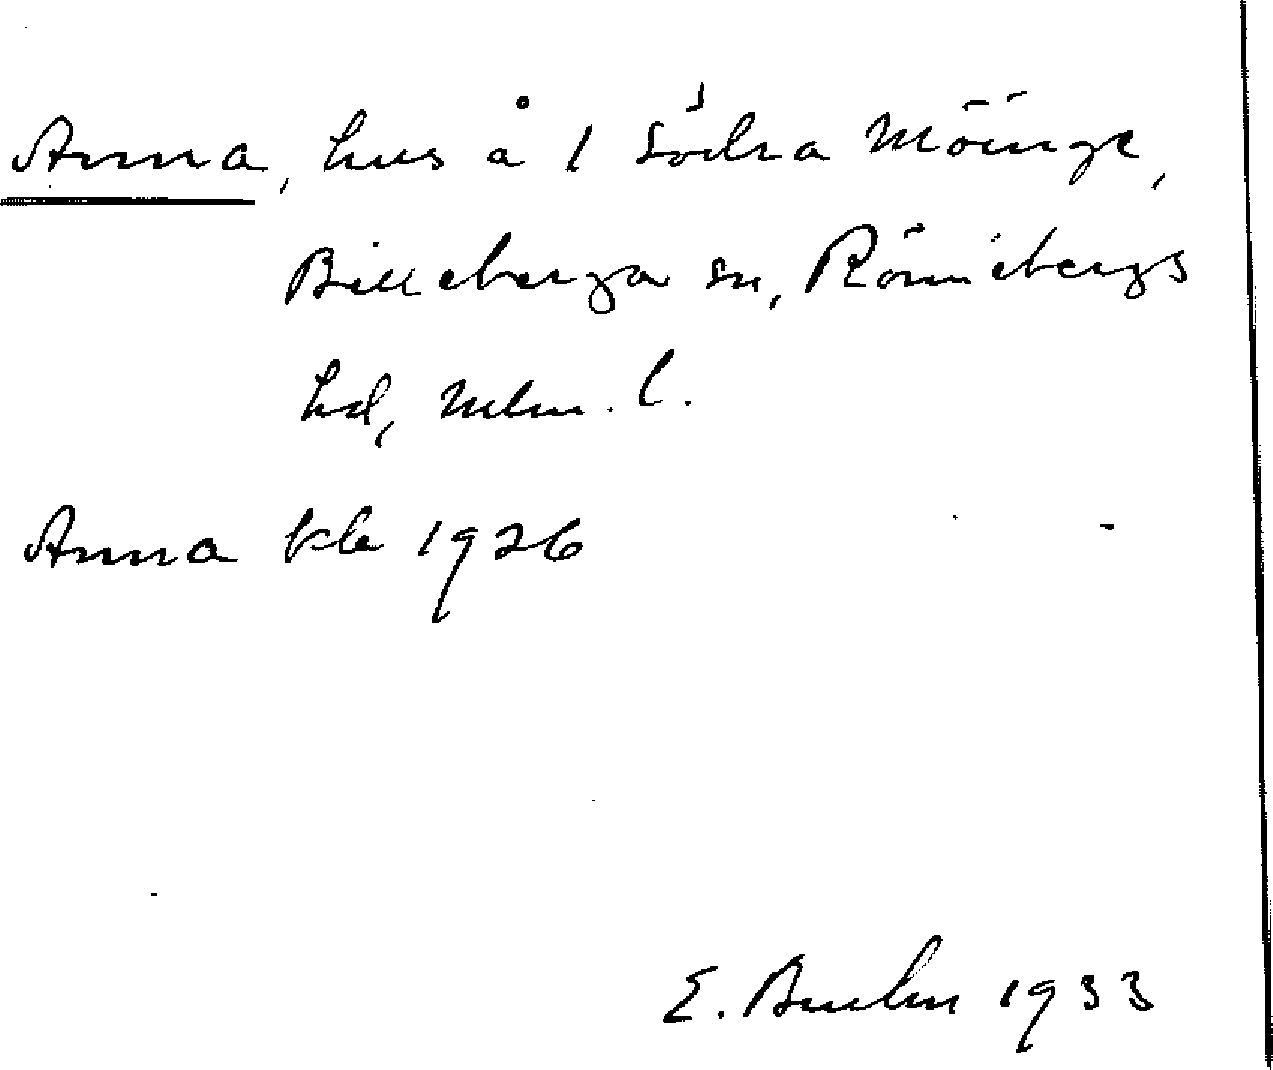 Anna, hus å 1 Södra Möinge,
Billeberga sn, Rönnebergs
hd, Mlm. l.
Anna kla 1926
E. Bruhn 1933